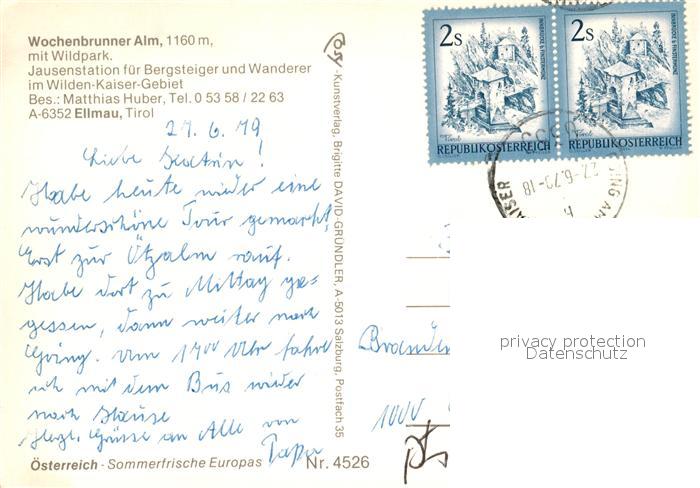 Wochenbrunner Alm, 1160 m,
mit Wildpark.
Jausenstation für Bergsteiger und Wanderer
im Wilden-Kaiser-Gebiet
Bes.: Matthias Huber, Tel. 0 53 58 / 22 63
A-6352 Ellmau, Tirol
27.6.79
Liebe Katrin!
Habe heute wieder eine
wunderschöne Tour gemacht,
Erst zur Ötzalm rauf.
Habe dort zu Mittag ge=
gessen, dann weiter nach
Going. Um 17⁰⁰ Uhr fahre
ich mit dem Bus wieder
nach Hause
Herzl. Grüsse an Alle von
Papa
Österreich - Sommerfrische Europas Nr. 4526
-Kunstverlag, Brigitte DAVID-GRÜNDLER, A-5013 Salzburg, Postfach 35
2s
Tirol
REPUBLIK ÖSTERREICH
2s
Tirol
REPUBLIK ÖSTERREICH
GOING AM
KAISER
27.-6.79-18
Branden
1000
privacy protection
Datenschutz